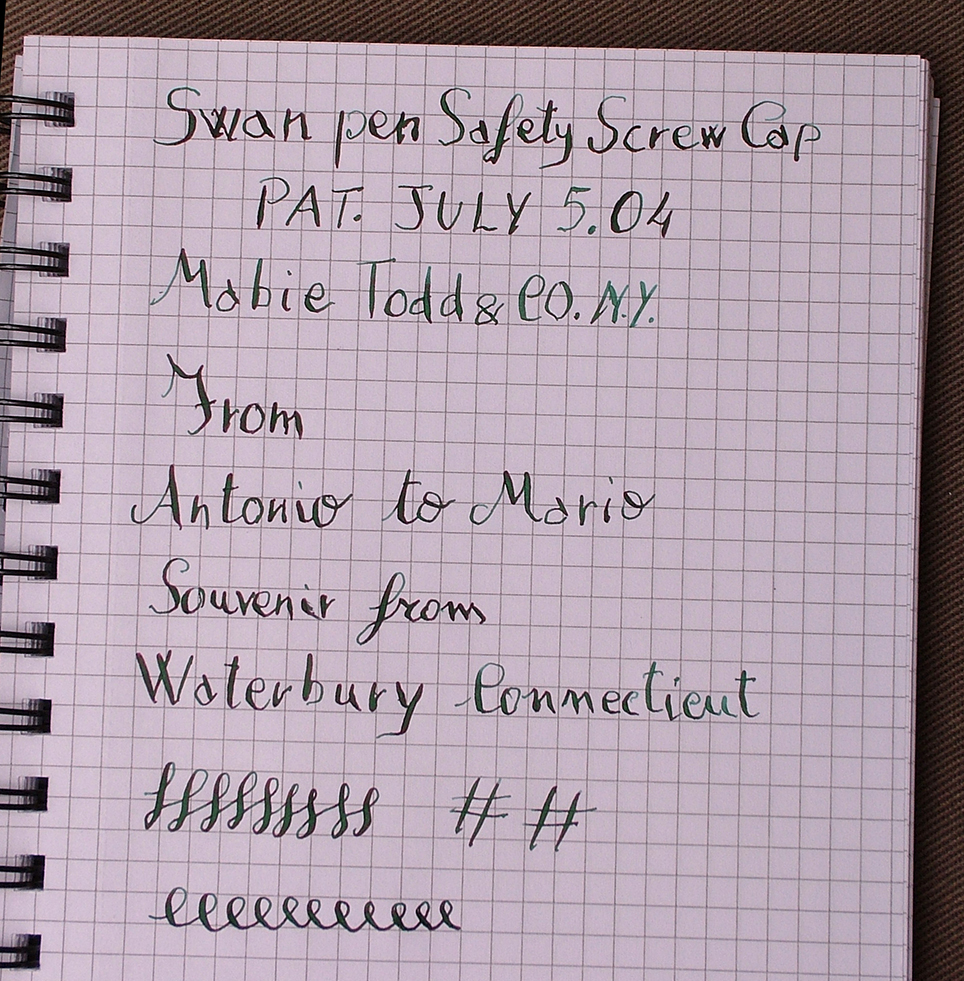 Swan pen Safety Screw Cap
PAT. JULY 5.04
Mabie Todd & CO. N.Y.
From
Antonio to Mario
Souvenir from
Waterbury Connecticut
ſſſſſſſſſ # #
eeeeeeeeeee